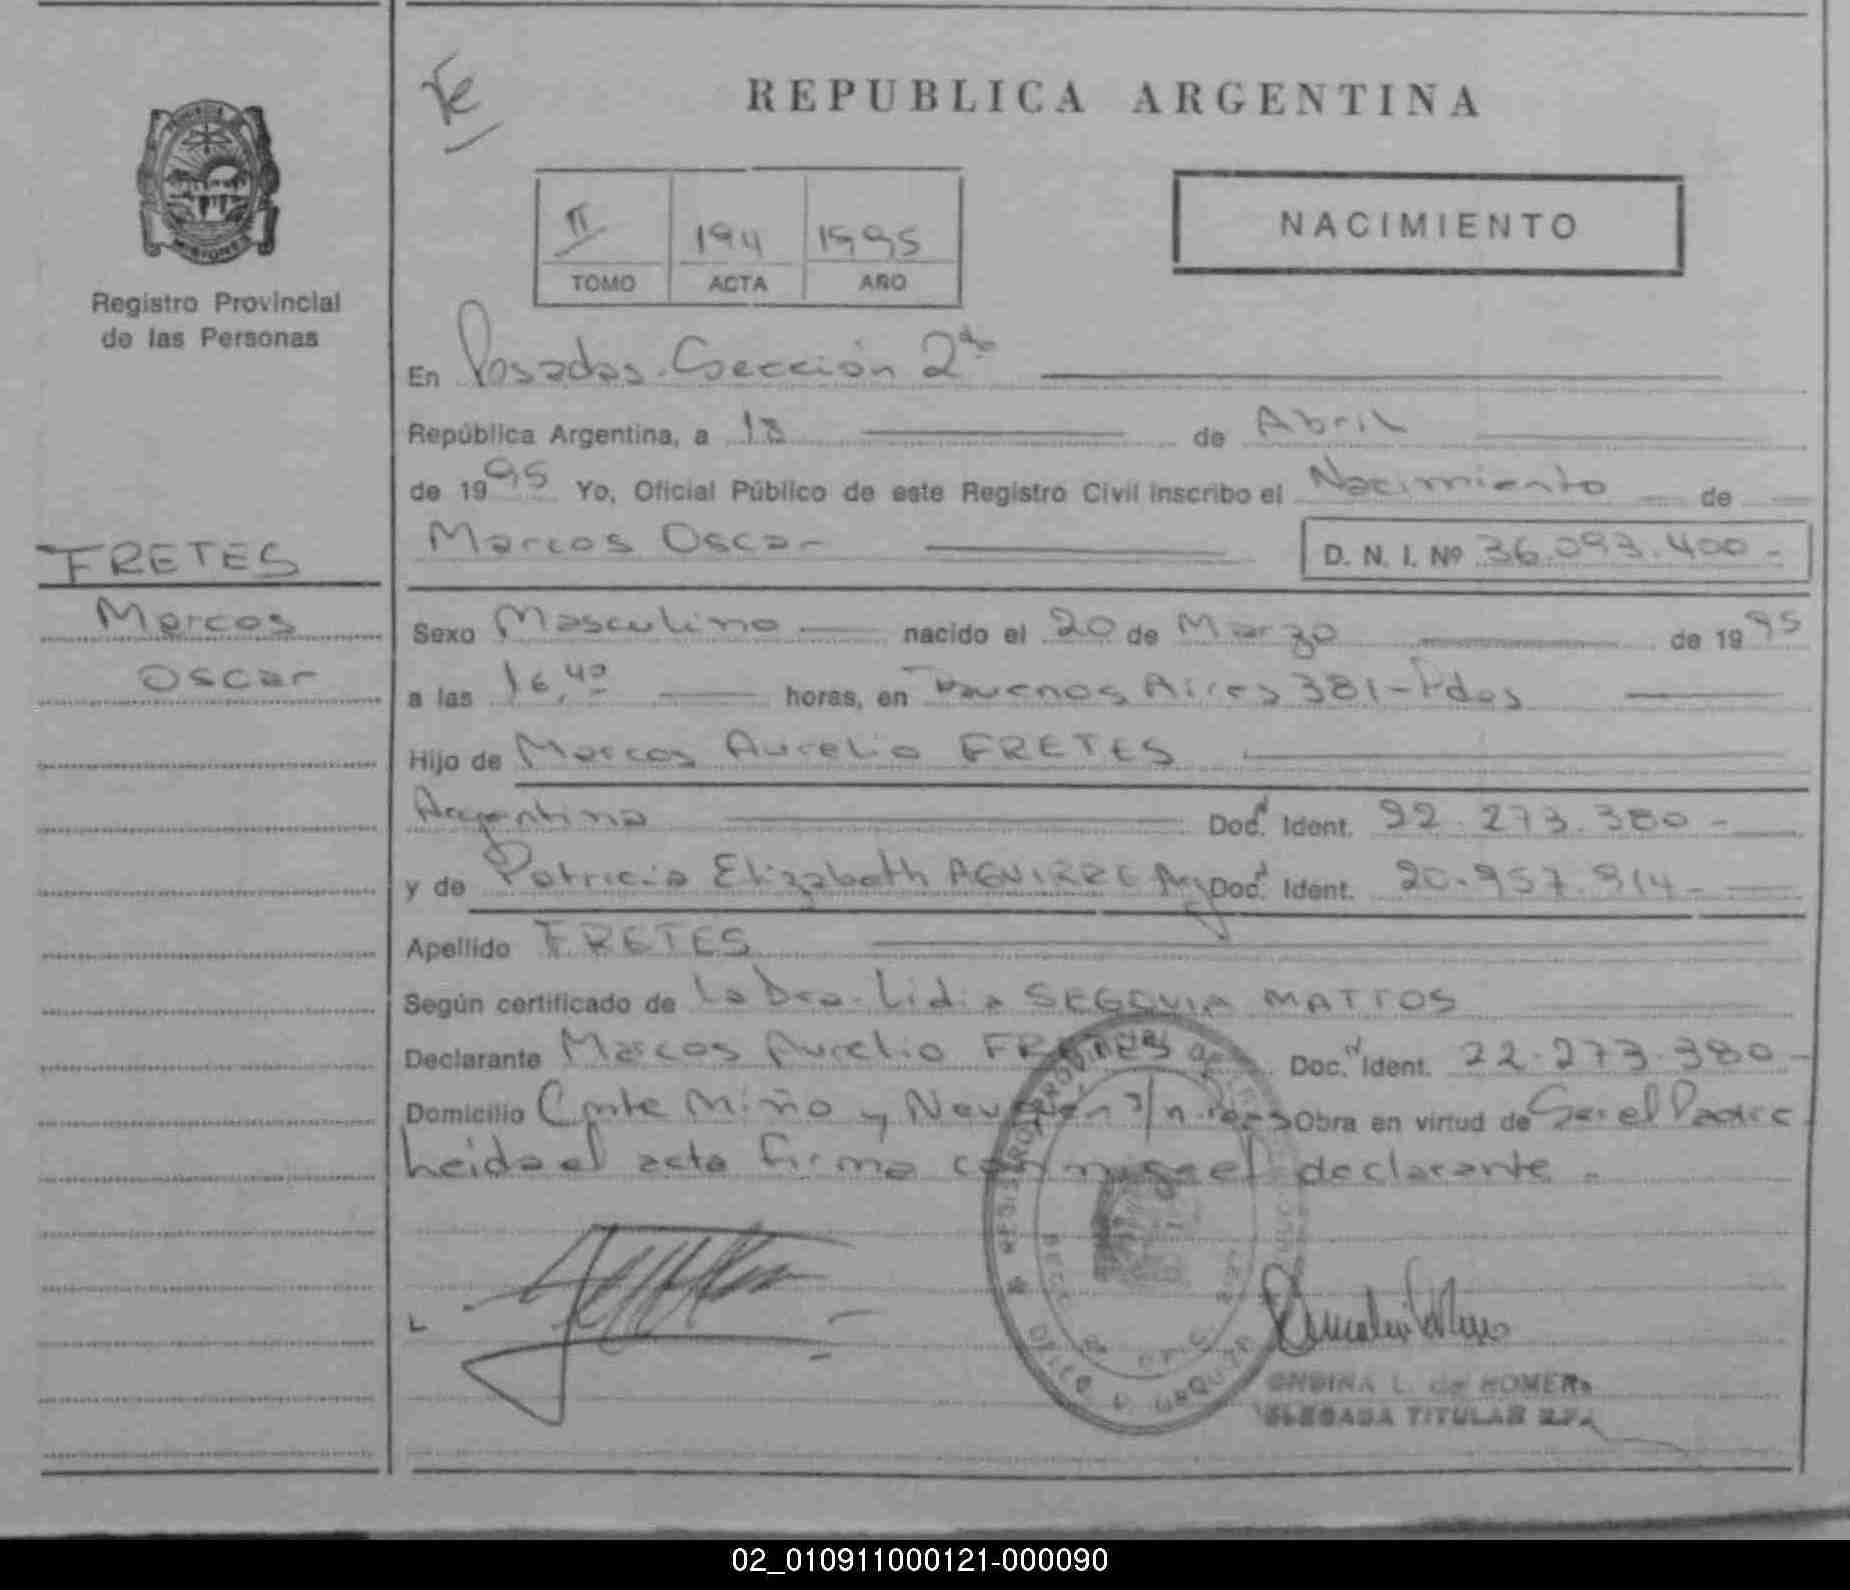 Te
REPUBLICA ARGENTINA
MISIONES
Registro Provincial
de las Personas
II 194 1995
TOMO ACTA AÑO
NACIMIENTO
En Posadas. Sección 2da
República Argentina, a 18 de Abril
de 1995 Yo, Oficial Público de este Registro Civil inscribo el Nacimiento de
Marcos Oscar D. N. I. Nº 36.093.400-
FRETES
Marcos
Oscar
Sexo Masculino nacido el 20 de Marzo de 1995
a las 16,40 horas, en Buenos Aires 381-Pdas
Hijo de Marcos Aurelio FRETES
Argentina Doc. Ident. 22.273.380-
y de Patricia Elizabeth AGUIRRE Arg Doc. Ident. 20.957.914-
Apellido FRETES
Según certificado de la Dra. Lidia SEGOVIA MATTOS
Declarante Marcos Aurelio FRETES Doc. Ident. 22.273.380-
Domicilio Cnte Miño y Neuquén s/n. Pdas Obra en virtud de Ser el Padre
Leida el acta firma conmigo el declarante.
ONDINA L. de ROMERO
DELEGADA TITULAR
02_010911000121-000090